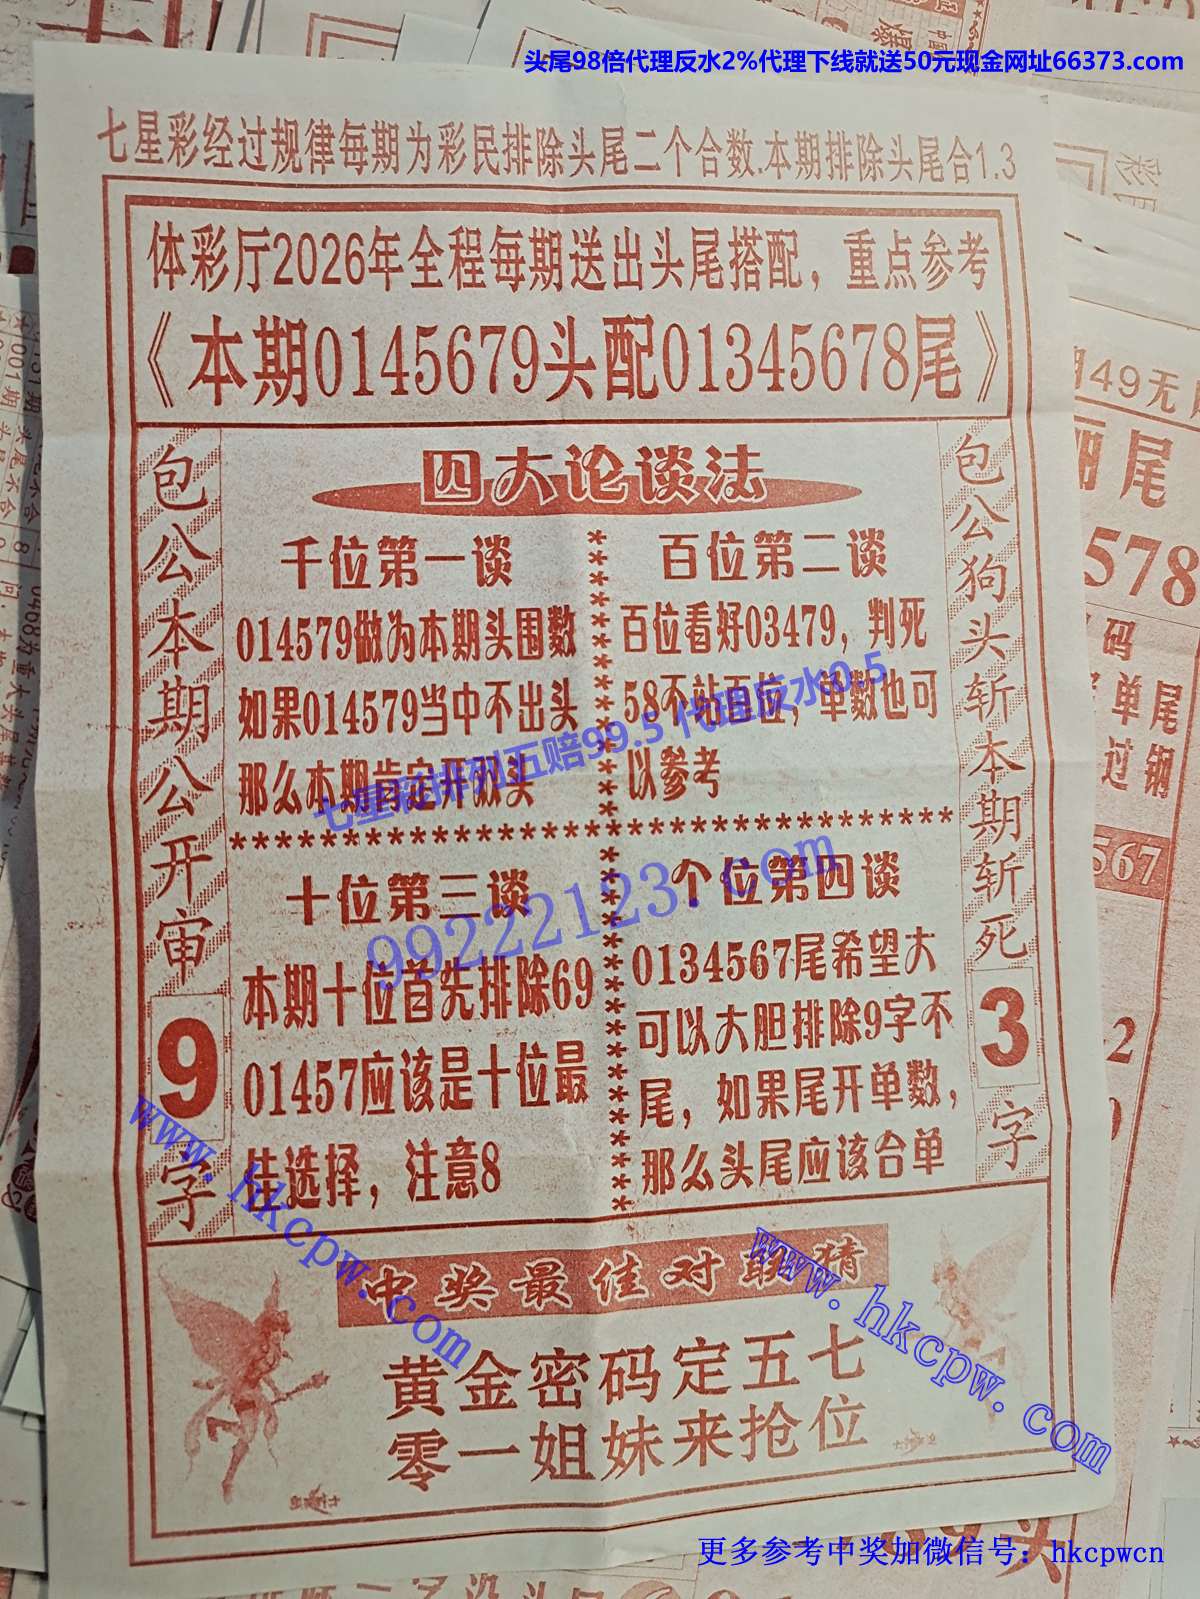 头尾98倍代理反水2%代理下线就送50元现金网址66373.com
七星彩经过规律每期为彩民排除头尾二个合数.本期排除头尾合1.3
体彩厅2026年全程每期送出头尾搭配，重点参考
《本期0145679头配01345678尾》
包公本期公开审9字
四大论谈法
千位第一谈
014579做为本期头围数
如果014579当中不出头
那么本期肯定开双头
百位第二谈
百位看好03479，判死
58不站百位，单数也可
以参考
十位第三谈
本期十位首先排除69
01457应该是十位最
佳选择，注意8
个位第四谈
0134567尾希望大
可以大胆排除9字不
尾，如果尾开单数，
那么头尾应该合单
包公狗头斩本期斩死3字
七星彩排列五赔99.5 代理反水0.5
99222123.com
www.hkcpw.com
www.hkcpw.com
中奖最佳对联猜
黄金密码定五七
零一姐妹来抢位
更多参考中奖加微信号：hkcpwcn
49无
尾
578
码
单尾
过钢
567
头